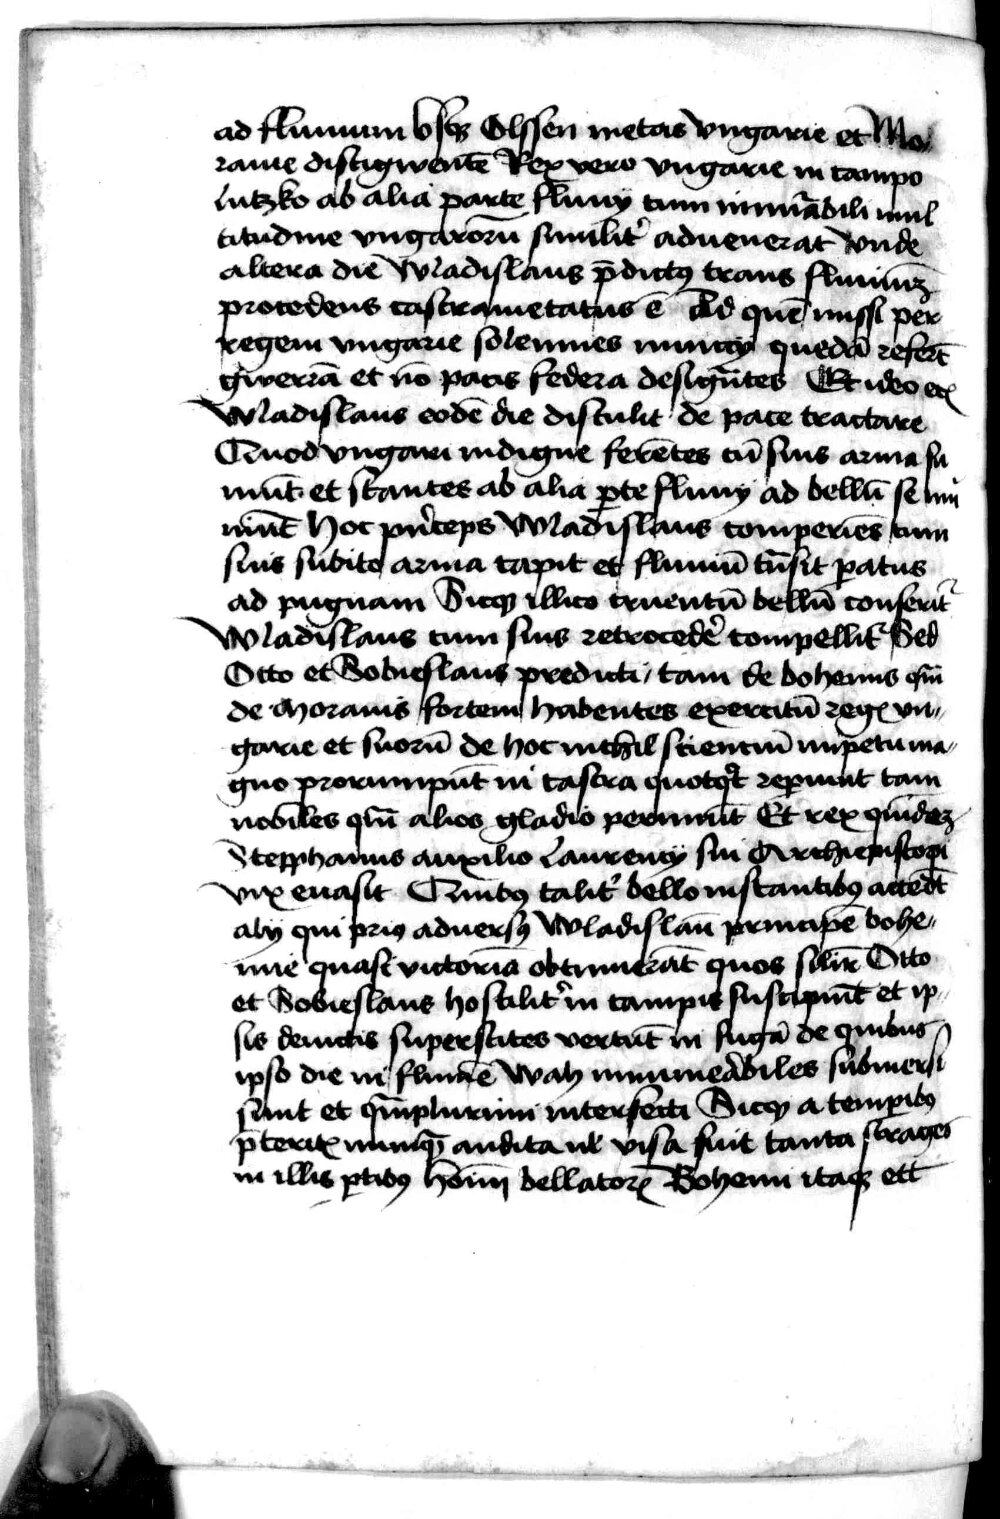 ad fluuium vsq3 Olssen metas vngarie et Mo
rauie distigwentē Rex vero vngarie in campo
lutzko ab alia parte fluuy cum innūābili mul
titudine vngarorū similit' aduenerat vnde
altera die Wladislaus p̄dictus trans fluuiuz
procedens castrametatus ē Ad quē missi per
regem vngarie solennes nuncy quedā refert̄
gwerrā et nō pacis federa designātes Et ideo
Wladislaus eodē die distulit de pace tractare
Quod vngari indigne ferētes cū suis arma su
munt et stantes ab alia pte fluuy ad bellū se
muūt Hoc pͥnceps Wladislaus comperiēs cum
suis subito arma capit et fluuiū tn̄sit patus
ad pugnam Sicq3 illico cruentū bellū conserit'
Wladislaus cum suis retrocedēr compellit' Sed
Otto et Sobieslaus predicti / tam de bohemis qm̄
de Morauis fortem habentes exercitū regē vn„
garie et suorū de hoc nichil scientiuī impetu ma„
gno prorumpūt in castra quotqͦt reperiunt tam
nobiles qm̄ alios gladio perimunt Et rex quidez
Stepphanus auxilio laurency sui Archiepiscopi
vix euasit Quibus talit' bello instantibus accedt̄
aly qui prius aduersus Wladislaū principē bohe„
mie quasi victoriā obtinuerāt quos silir Otto
et Sobieslaus hostilit' in campis suscipiūt et ip„
sis deuictis superstites vertūt in fugā de quibus
ipso die in flumē Wah innumeābiles submersi
sunt et qm̄plurimi interfecti Sicq3 a temporibus
p̄teritis nunq̄ audita vl' visa fuit tanta strages
in illis ptibus homī bellatorꝝ Bohemi itaq3